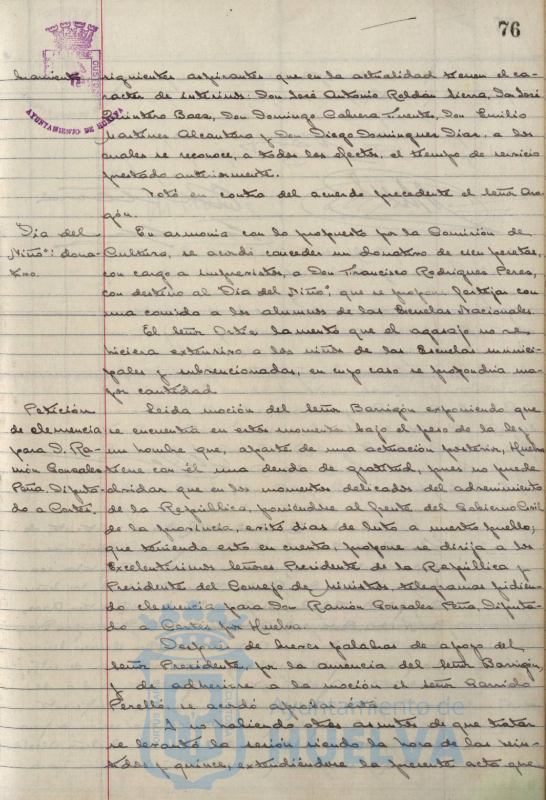 76
AYUNTAMIENTO DE HUELVA
siguientes aspirantes que en la actualidad tienen el ca-
racter de interinos: Don José Antonio Roldán Sierra, Don José
Quintero Baez, Don Domingo Cabrera Fuente, Don Emilio
Martinez Alcantara y Don Diego Dominguez Diaz, a los
cuales se reconoce, a todos los efectos, el tiempo de servicio
prestado anteriormente.
Votó en contra del acuerdo precedente el señor Ara-
gón.
"Dia del
Niño": dona-
tivo.
En armonia con lo propuesto por la Comisión de
Cultura, se acordó conceder un donativo de cien pesetas,
con cargo a imprevistos, a Don Francisco Rodriguez Perez,
con destino al "Dia del Niño", que se propone festejar con
una comida a los alumnos de las Escuelas Nacionales.
El señor Ortiz lamentó que el agasajo no se
hiciera extensivo a los niños de las Escuelas munici-
pales y subvencionadas, en cuyo caso se propondria ma-
yor cantidad.
Petición
de clemencia
para D. Ra-
món Gonzalez
Peña, Diputa-
do a Cortes.
Leida moción del señor Barrigón exponiendo que
se encuentra en estos momentos bajo el peso de la ley
un hombre que, aparte de una actuación posterior, Huelva
tiene con él una deuda de gratitud, pues no puede
olvidar que en los momentos delicados del advenimiento
de la República, poniéndose al frente del Gobierno Civil
de la provincia, evitó dias de luto a nuestro pueblo;
que teniendo esto en cuenta, propone se dirija a los
Excelentísimos señores Presidente de la República y
Presidente del Consejo de Ministros, telegramas pidien-
do clemencia para Don Ramón Gonzalez Peña, Diputa-
do a Cortes por Huelva.
Después de breves palabras de apoyo del
señor Presidente, por la ausencia del señor Barrigón,
y de adherirse a la moción el señor Garrido
Perelló, se acordó aprobar ésta.
Y no habiendo otros asuntos de que tratar
se levantó la sesión siendo la hora de las vein-
tidos y quince, extendiéndose la presente acta que
Ayuntamiento de
HUELVA